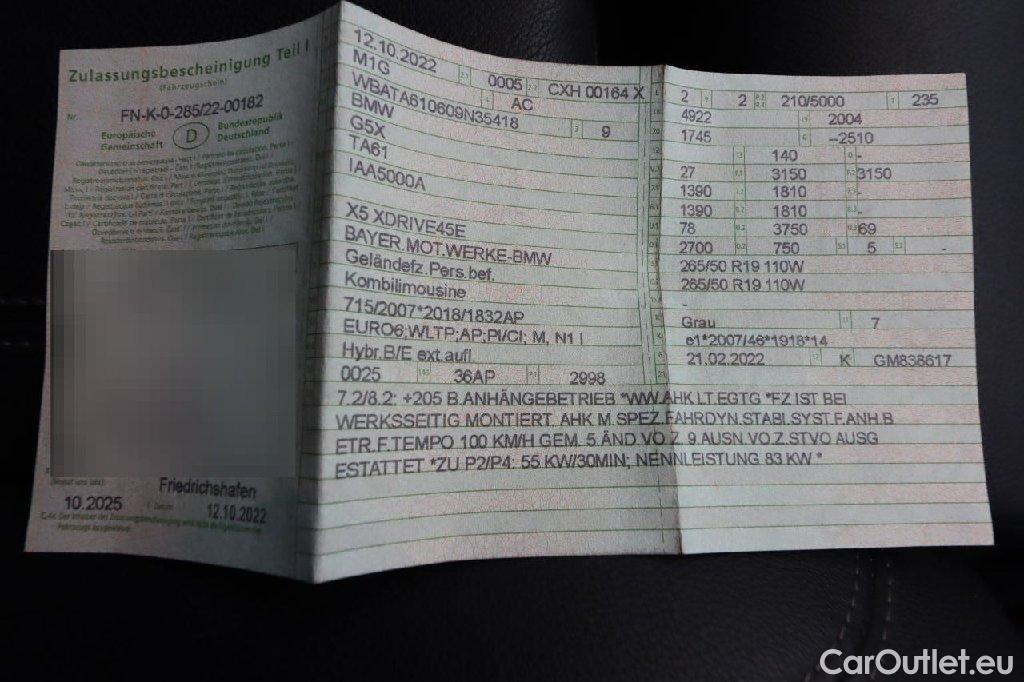 Zulassungsbescheinigung Teil I
(Fahrzeugschein)
Nr. FN-K-0-285/22-00182
Europäische Gemeinschaft D Bundesrepublik Deutschland
Friedrichshafen
10.2025 12.10.2022
12.10.2022 2.1 0005 2.2 CXH 00164 X
M1G AC
WBATA610609N35418 3 9
BMW
G5X
TA61
IAA5000A
X5 XDRIVE45E
BAYER.MOT.WERKE-BMW
Geländefz.Pers.bef.
Kombilimousine
715/2007*2018/1832AP
EURO6;WLTP;AP;PI/CI; M, N1 I
Hybr.B/E ext.aufl.
0025 36AP 2998
2 2 210/5000 235
4922 2004
1745 --2510
140 -
27 3150 3150
1390 1810 -
1390 1810 -
78 3750 69
2700 750 5 -
265/50 R19 110W
265/50 R19 110W
-
Grau 7
e1*2007/46*1918*14
21.02.2022 K GM838617
7.2/8.2: +205 B.ANHÄNGEBETRIEB *WW.AHK LT.EGTG *FZ IST BEI
WERKSSEITIG MONTIERT. AHK M.SPEZ.FAHRDYN.STABI.SYST.F.ANH.B
ETR.F.TEMPO 100 KM/H GEM. 5.ÄND VO Z. 9 AUSN.VO.Z.STVO AUSG
ESTATTET *ZU P2/P4: 55 KW/30MIN; NENNLEISTUNG 83 KW *
CarOutlet.eu